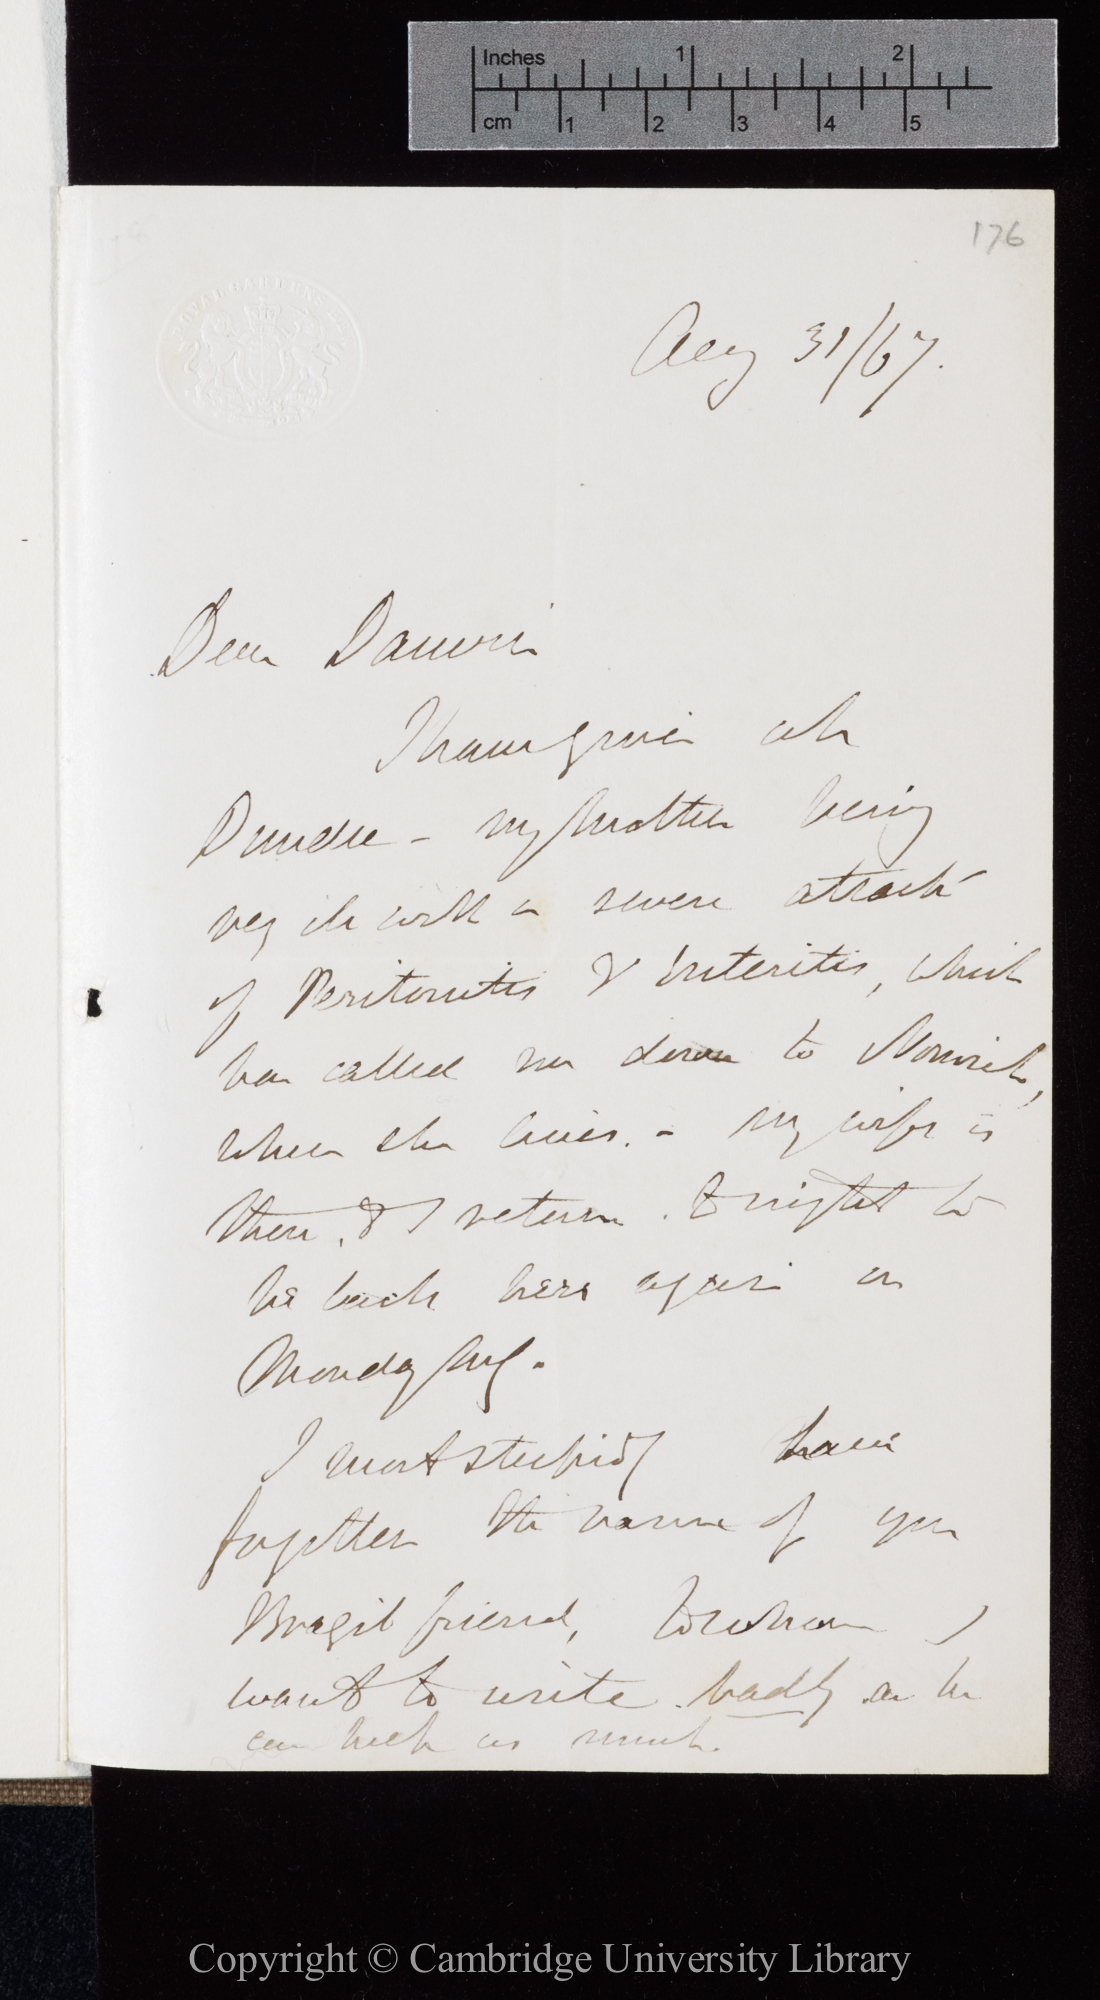 Inches 1 2
cm 1 2 3 4 5
176
ROYAL GARDENS
Aug 31/67.
Dear Darwin
I have given up
Dundee — my mother being
very ill with a severe attack
of Peritonitis & Enteritis, which
has called me down to Norwich,
where she lives. — My wife is
there, & I return tonight to
be back here again on
Monday
I most stupidly have
forgotten the name of your
Brazil friend, to whom I
want to write badly as he
can help us much.
Copyright © Cambridge University Library